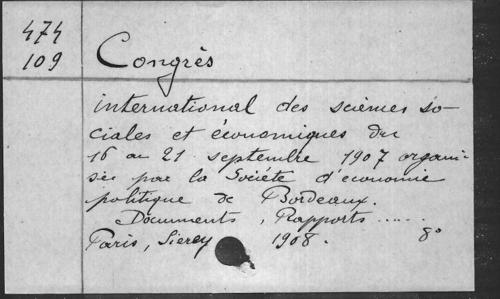 474
109
Congrès
international des sciences so-
ciales et économiques du
16 au 21 septembre 1907 organi-
sés par la Société d'économie
politique de Bordeaux.
Documents, Rapports .....
Paris, Sierey 1908. 8°